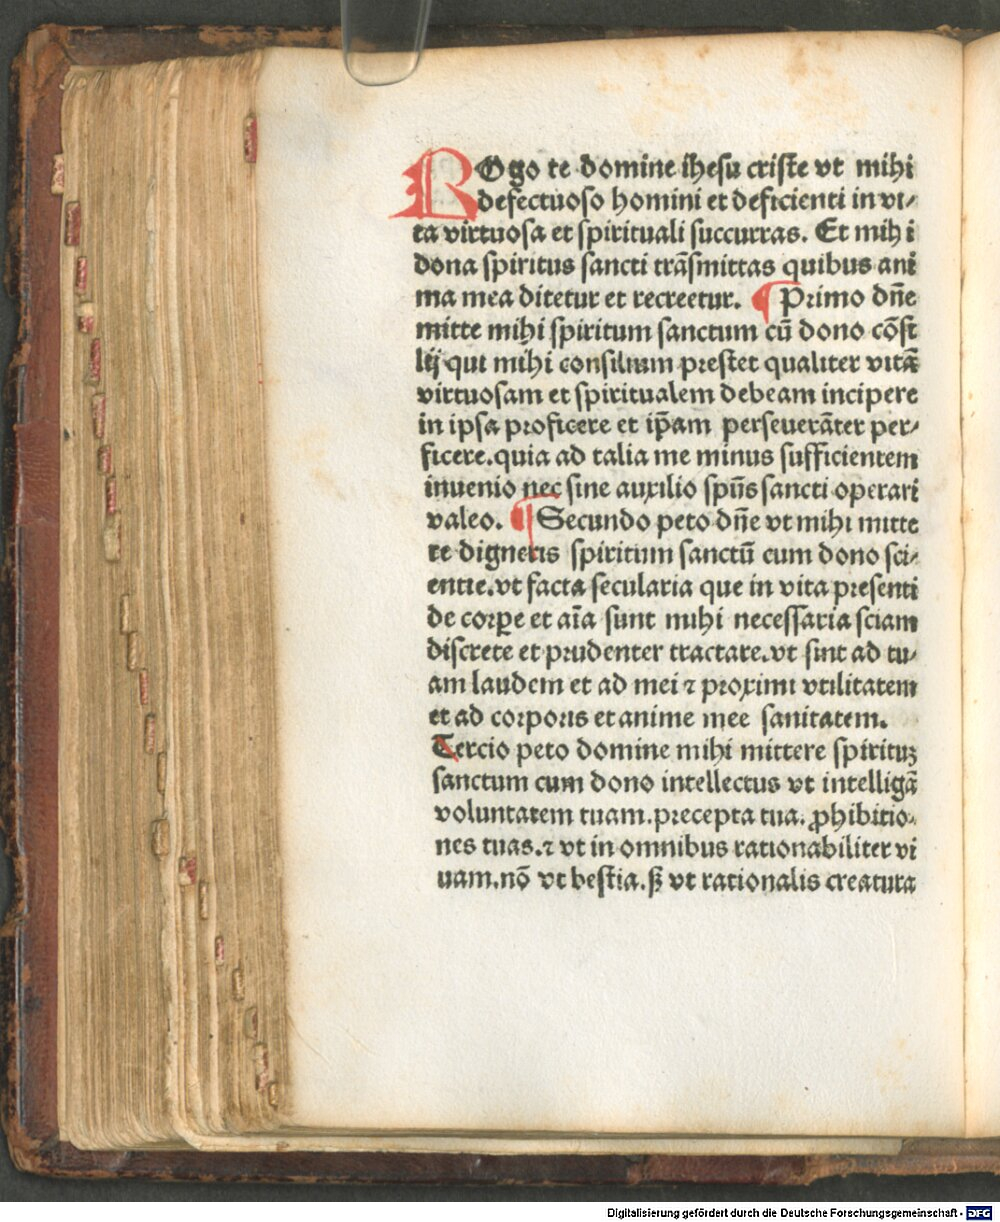 ROgo te domine ihesu criste vt mihi
defectuoso homini et deficienti in vi⸗
ta virtuosa et spirituali succurras. Et mihi
dona spiritus sancti trāsmittas quibus ani
ma mea ditetur et recreetur. ¶ Primo dn̄e
mitte mihi spiritum sanctum cū dono cōsi
lij qui mihi consilium prestet qualiter vitā
virtuosam et spiritualem debeam incipere
in ipsa proficere et ip̄am perseuerāter per⸗
ficere. quia ad talia me minus sufficientem
inuenio nec sine auxilio spūs sancti operari
valeo. ¶ Secundo peto dn̄e vt mihi mitte
re digneris spiritum sanctū cum dono sci⸗
entie. vt facta secularia que in vita presenti
de corꝑe et aīa sunt mihi necessaria sciam
discrete et prudenter tractare. vt sint ad tu⸗
am laudem et ad mei ⁊ proximi vtilitatem
et ad corporis et anime mee sanitatem.
Tercio peto domine mihi mittere spirituꝫ
sanctum cum dono intellectus vt intelligā
voluntatem tuam. precepta tua. ꝓhibitio⸗
nes tuas. ⁊ vt in omnibus rationabiliter vi
uam. nō vt bestia. sꝫ vt rationalis creatura
Digitalisierung gefördert durch die Deutsche Forschungsgemeinschaft - DFG